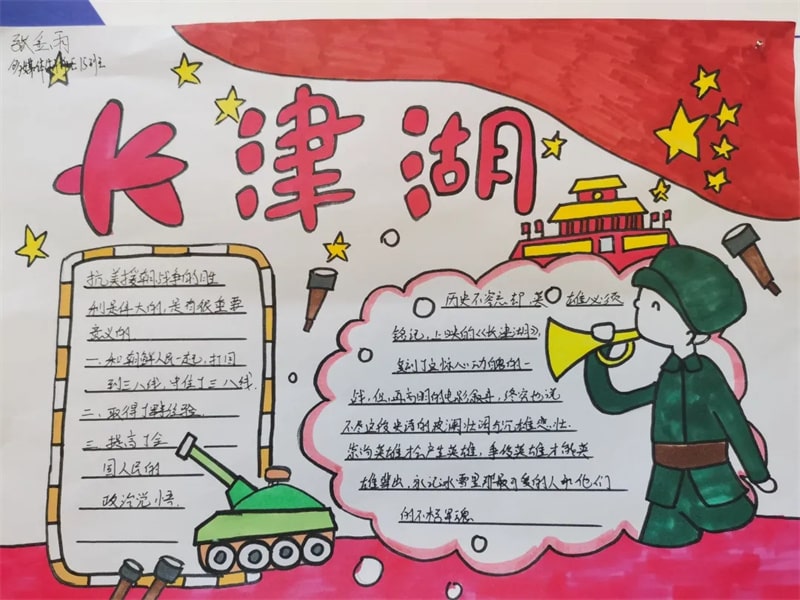 张金雨
长津湖
抗美援朝战争的胜
利是伟大的，是有很重要
意义的
一. 和朝鲜人民一起，打回
到三八线，守住了三八线.
二. 取得了军事经验.
三. 提高了全
国人民的
政治觉悟
历史不容忘却，英雄必须
铭记，上映的《长津湖》，
复刻了这惊心动魄的一
战，但，再高明的电影叙事，终究也说
不尽这段史诗的波澜壮阔与沉雄悲壮.
崇尚英雄才会产生英雄，争做英雄才能英
雄辈出，永记冰雪里那最可爱的人和他们
的不朽军魂